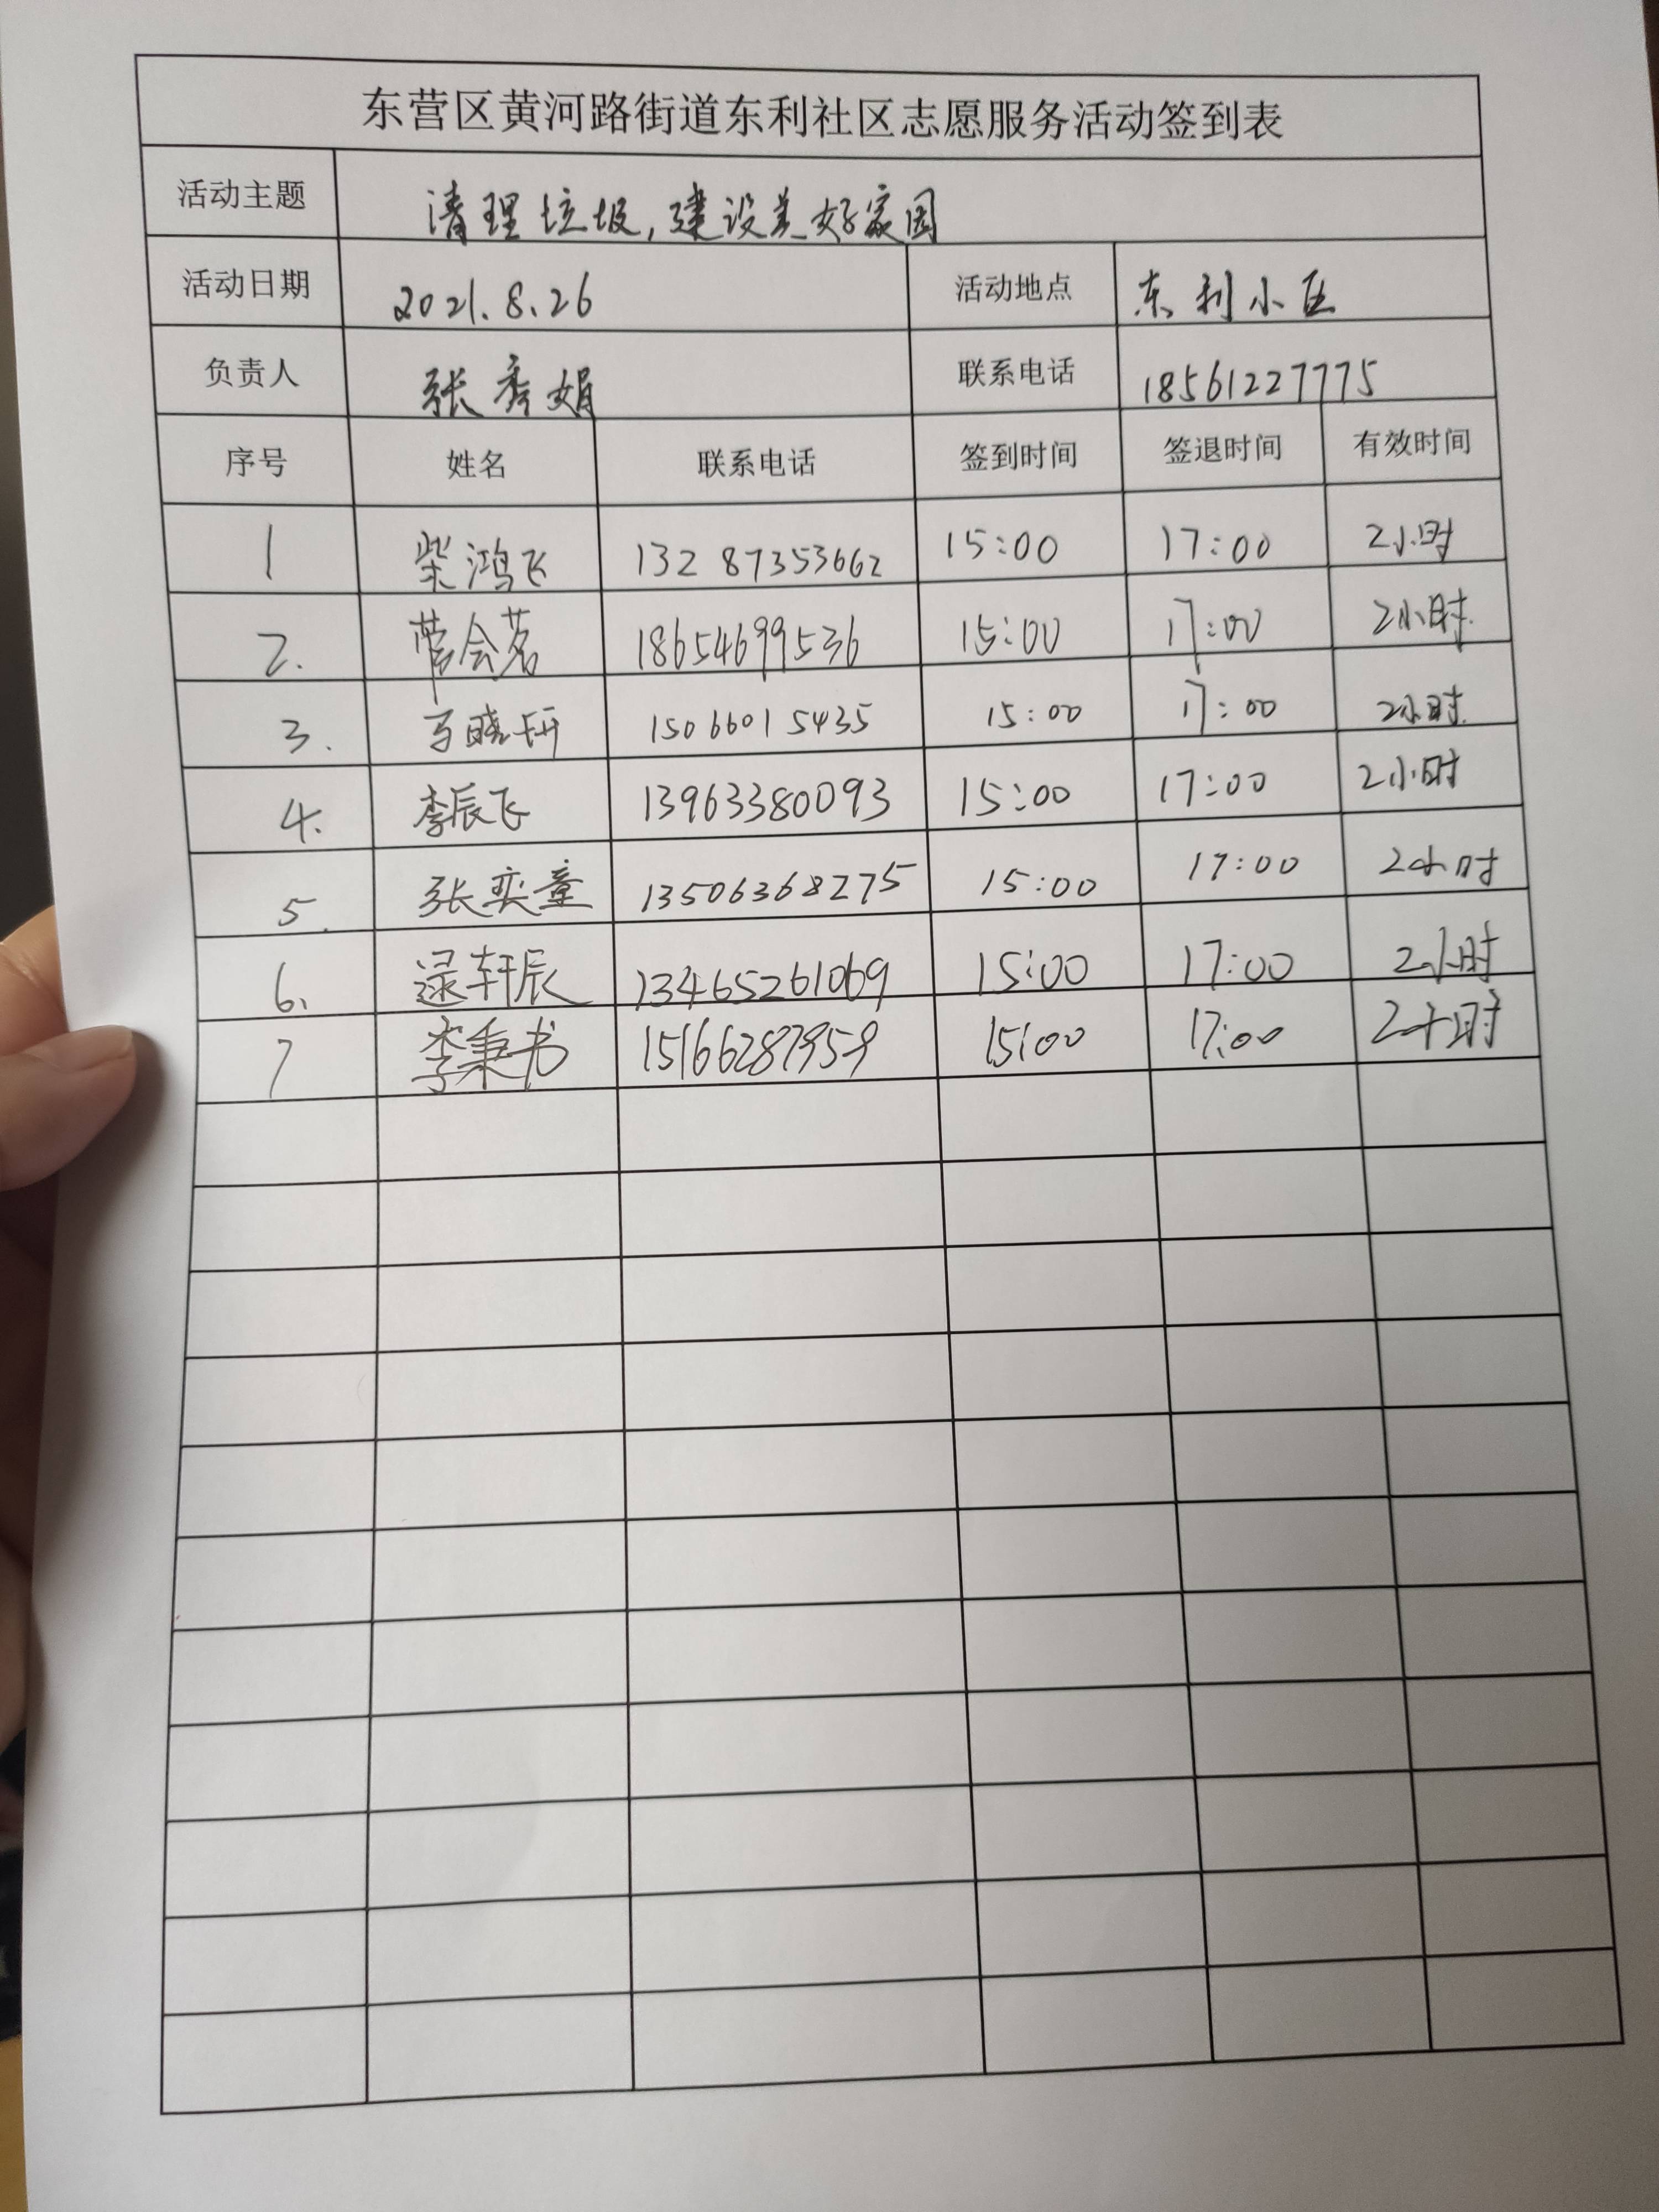 东营区黄河路街道东利社区志愿服务活动签到表
活动主题 清理垃圾,建设美好家园
活动日期 2021.8.26 活动地点 东利小区
负责人 张秀娟 联系电话 18561227775
序号 姓名 联系电话 签到时间 签退时间 有效时间
1 柴鸿飞 13287353662 15:00 17:00 2小时
2. 菅会茗 18654699536 15:00 17:00 2小时.
3. 马晓妍 15066015435 15:00 17:00 2小时.
4. 李辰飞 13963380093 15:00 17:00 2小时
5. 张奕童 13506368275 15:00 17:00 2小时
6. 逯轩辰 13465261069 15:00 17:00 2小时
7 李秉书 15166287959 15:00 17:00 2小时